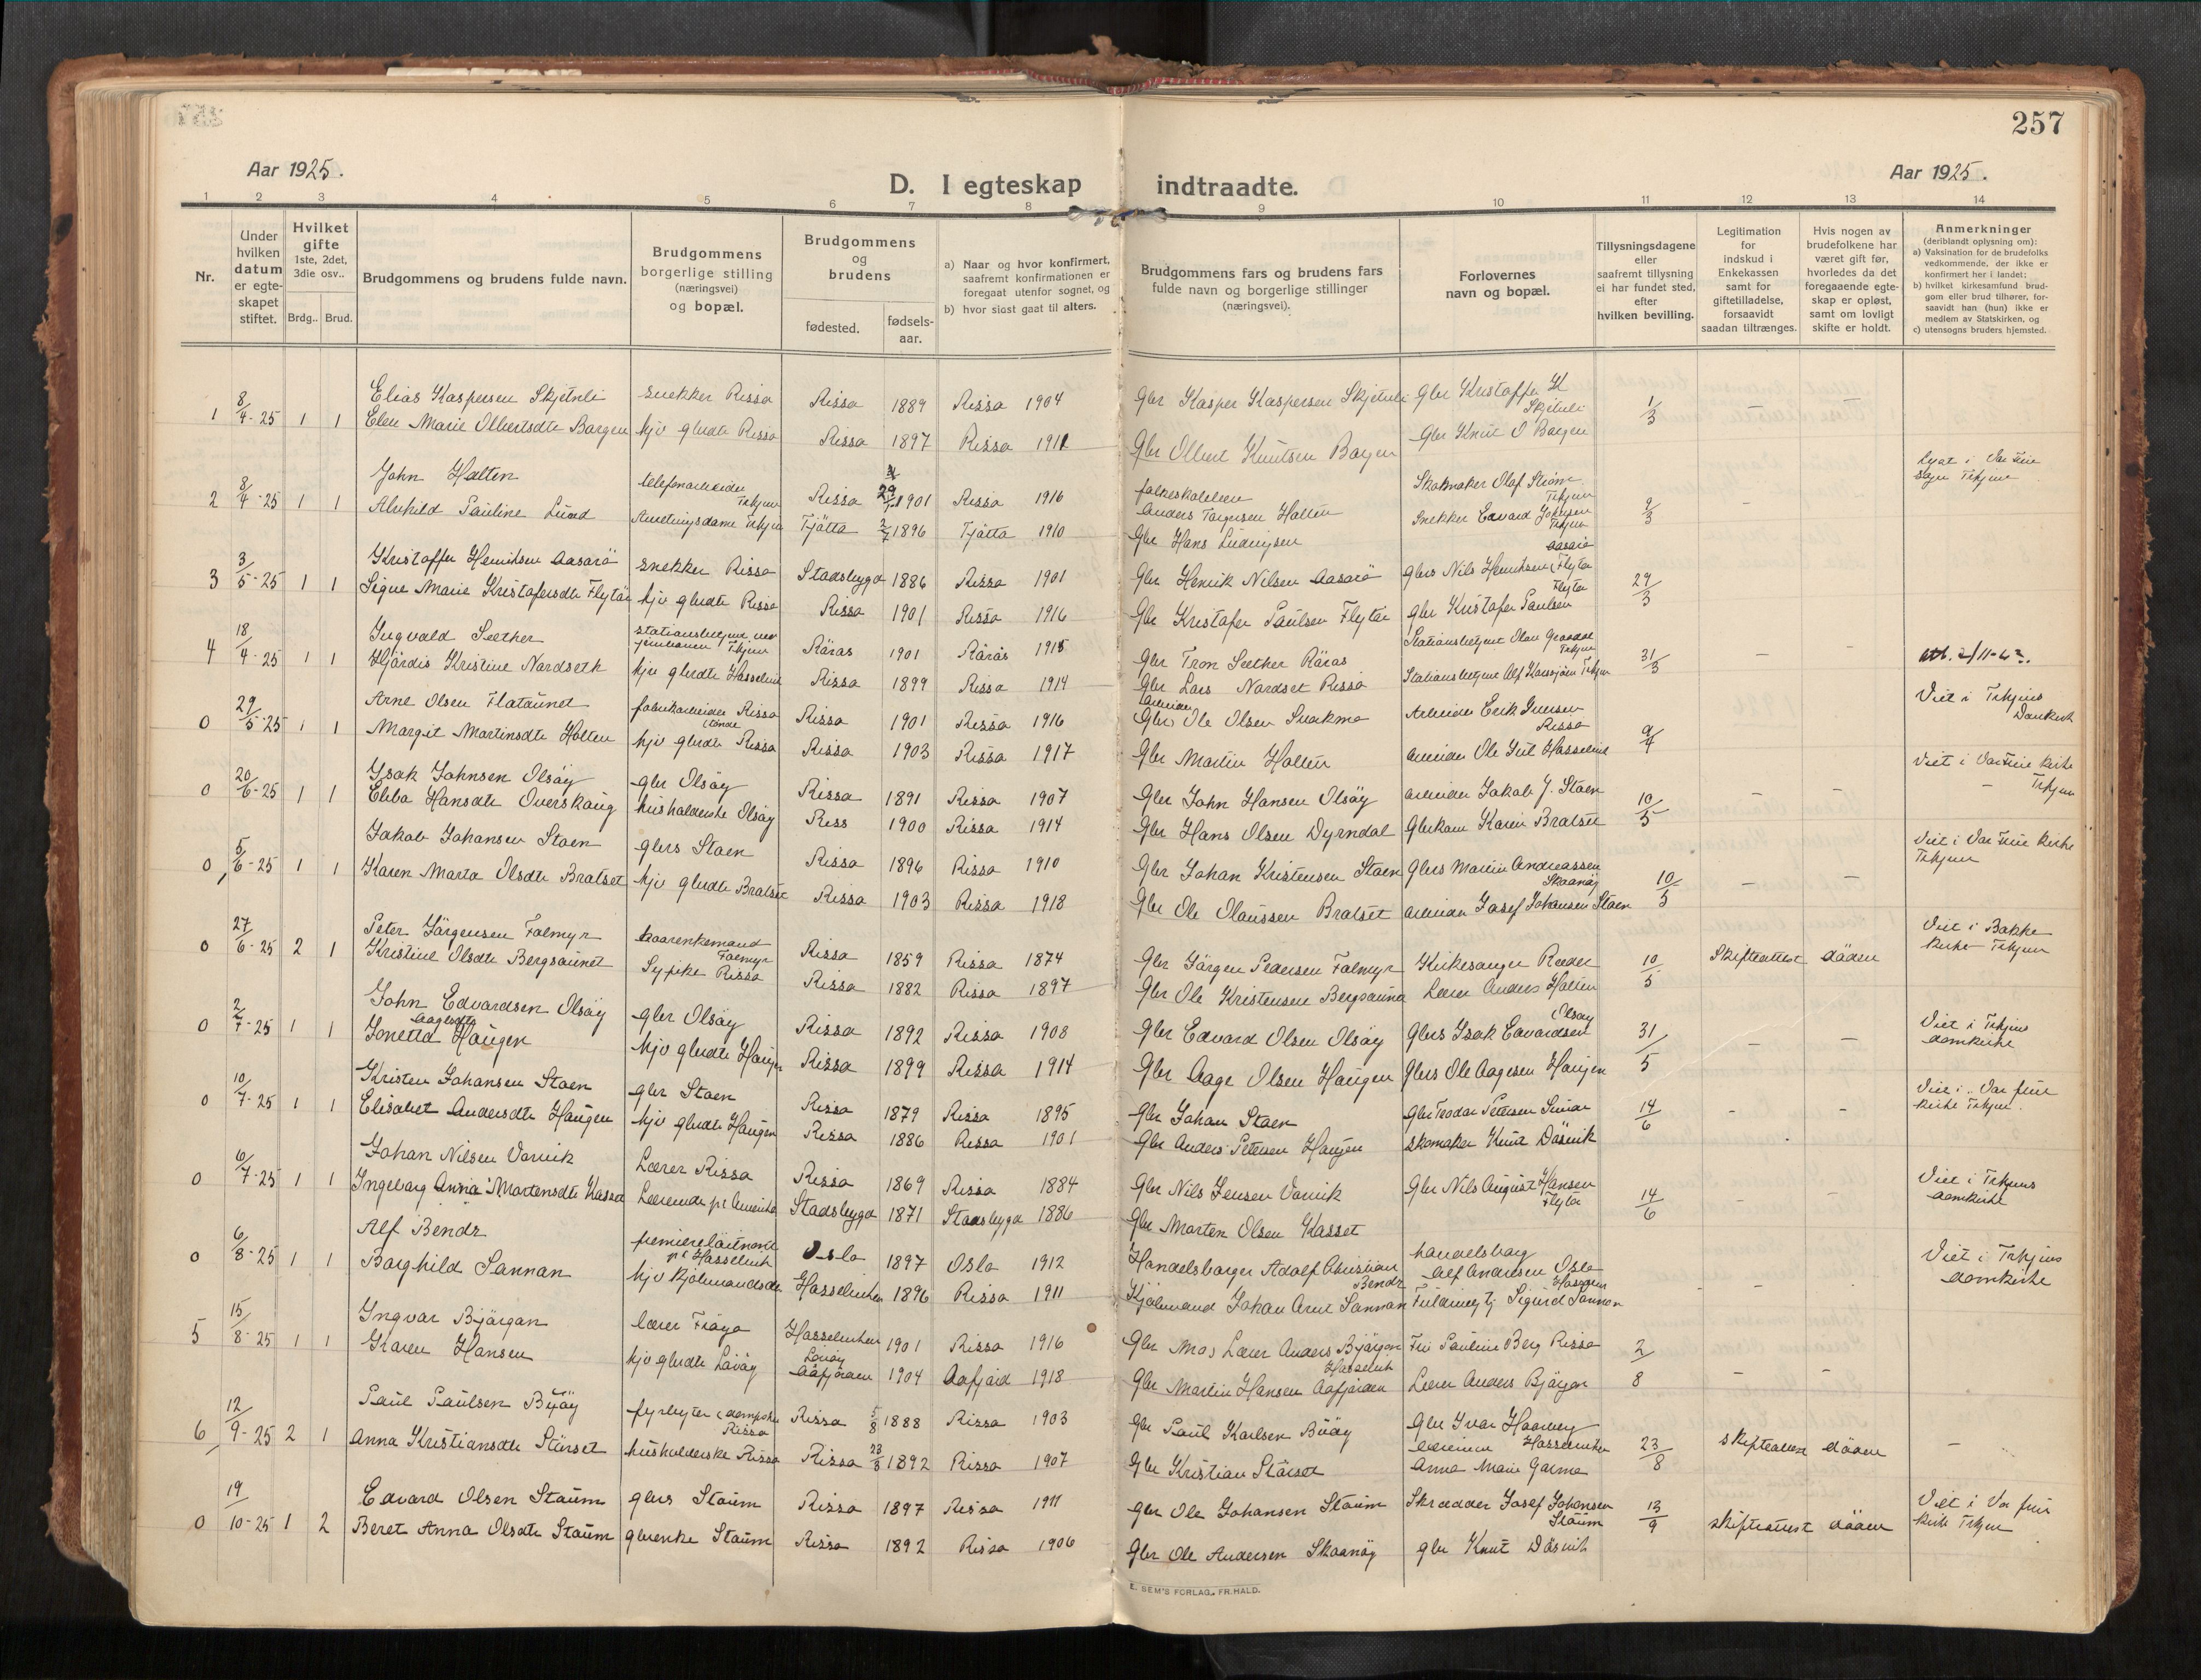 257
Aar 1925.
Aar 1925.
D. I egteskap indtraadte.
1 2 3 4 5 6 7 8 9 10 11 12 13 14
Nr.
Under hvilken datum er egte-skapet stiftet.
Hvilket gifte 1ste, 2det, 3die osv..
Brdg.. Brud.
Brudgommens og brudens fulde navn.
Brudgommens borgerlige stilling (næringsvei) og bopæl.
Brudgommens og brudens
fødested.
fødsels-aar.
a) Naar og hvor konfirmert, saafremt konfirmationen er foregaat utenfor sognet, og
b) hvor sidst gaat til alters.
Brudgommens fars og brudens fars fulde navn og borgerlige stillinger (næringsvei).
Forlovernes navn og bopæl.
Tillysningsdagene eller saafremt tillysning ei har fundet sted, efter hvilken bevilling.
Legitimation for indskud i Enkekassen samt for giftetilladelse, forsaavidt saadan tiltrænges.
Hvis nogen av brudefolkene har været gift før, hvorledes da det foregaaende egte-skap er opløst, samt om lovligt skifte er holdt.
Anmerkninger (deriblandt oplysning om):
a) Vaksination for de brudefolks vedkommende, der ikke er konfirmert her i landet;
b) hvilket kirkesamfund brud-gom eller brud tilhører, for-saavidt han (hun) ikke er medlem av Statskirken, og
c) utensogns bruders hjemsted.
1 8/4-25 1 1 Elias Kaspersen Skjetnli snekker Rissa Rissa 1889 Rissa 1904 Gbr Kasper Kaspersen Skjetnli Gbr Kristoffer K Skjetnli 1/3 — —
Elen Marie Olbertsdtr Borgen hjv gbrdtr Rissa Rissa 1897 Rissa 1911 Gbr Olbert Knutsen Borgen Gbr Knut O Borgen
2 8/4-25 1 1 John Halten telefonarbeider Trhjem Rissa 29 1901 Rissa 1916 Anders Torgersen Halten Skomaker Olaf Strøm Trhjem 9/3 —
Alvhild Pauline Lund Trhjem Tjøtta 2/7 1896 Tjøtta 1910 Gbr Hans Ludvigsen Snekker Edvard Johnsen Trhjem
3 3/5-25 1 1 Kristoffer Henriksen Aasarö snekker Rissa Stadsbygd 1886 Rissa 1901 Gbr Henrik Nilsen Aasarö Gbrs Nils Henriksen Aasarö 29/3
Signe Marie Kristofersdtr Flytör hjv gbrdtr Rissa Rissa 1901 Rissa 1916 Gbr Kristofer Paulsen Flytör gbr Kristofer Paulsen Flytör
4 18/4-25 1 1 Ingvald Sæther stationsbetjent ved jernbanen Trhjem Röros 1901 Röros 1915 Gbr Tron Sæther Röros Stationsbetjent Olav Trhjem 31/3 — —
Hjördis Kristine Nordseth hjv gbrdtr Hasselvik Rissa 1899 Rissa 1914 Gbr Lars Nordset Rissa Stationsbetjent Alf Trhjem
0 29/5-25 1 1 Arne Olsen Flataunet fabrikarbeider Rissa Rissa 1901 Rissa 1916 Arbeider Ole Olsen Arbeider Erik Iversen Rissa 9/4 Viet i Trhjems Domkirk
Margit Martinsdtr Holten hjv gbrdtr Rissa Rissa 1903 Rissa 1917 Gbr Martin Holten arbeider Ole Hasselvik
0 20/6-25 1 1 Isak Johnsen Olsöy gbr Olsöy Rissa 1891 Rissa 1907 Gbr John Hansen Olsöy arbeider Jakob J. Stoen 10/5 — — Viet i Vor Frue kirke Trhjem
Ebba Hansdtr Overskaug husholderske Olsöy Riss 1900 Rissa 1914 Gbr Hans Olsen Dyrndal Gbrkone Karen Bratset
0 5/6-25 1 1 Jakob Johansen Stoen gbrs Stoen Rissa 1896 Rissa 1910 Gbr Johan Kristensen Stoen Gbrs Martin Andreassen Skaanöy 10/5 — — Viet i Vor Frue kirke Trhjem
Karen Marta Olsdtr Bratset hjv gbrdtr Bratset Rissa 1903 Rissa 1918 Gbr Ole Olaussen Bratset arbeider Josef Johansen Stoen
0 27/6-25 2 1 Peter Jörgensen Folmyr kaarenkemand Folmyr Rissa 1859 Rissa 1874 Gbr Jörgen Pedersen Folmyr Kirkesanger Reeder 10/5 Skifteattest döden Viet i Bakke kirke Trhjem
Kristine Olsdtr Bergsaunet Sypike Rissa Rissa 1882 Rissa 1897 Gbr Ole Kristensen Bergsaunet Lærer Anders Halten
0 2/7-25 1 1 John Edvardsen Olsöy gbr Olsöy Rissa 1892 Rissa 1908 Gbr Edvard Olsen Olsöy Gbrs Isak Edvardsen Olsöy 31/5 — — Viet i Trhjems domkirke
Jonetta Aagesdtr Haugen hjv gbrdtr Haugen Rissa 1899 Rissa 1914 Gbr Aage Olsen Haugen Gbrs Ole Aagesen Haugen
0 10/7-25 1 1 Kristen Johansen Stoen gbr Stoen Rissa 1879 Rissa 1895 Gbr Johan Stoen Gbr Teodor Petersen 14/6 — — Viet i Vor frue kirke Trhjem.
Elisabet Andersdtr Haugen hjv gbrdtr Haugen Rissa 1886 Rissa 1901 Gbr Anders Petersen Haugen skomaker Knut Dösvik
0 6/7-25 1 1 Johan Nilsen Vorvik Lærer Rissa Rissa 1869 Rissa 1884 Gbr Nils Jensen Vorvik Gbr Nils August Hansen Flytör 14/6 — — Viet i Trhjems domkirke
Ingeborg Anna Mortensdtr Kasset Stadsbygd 1871 Stadsbygd 1886 Gbr Morten Olsen Kasset
0 6/8-25 1 1 Alf Bendz premierløitnant pt Hasselvik Oslo 1897 Oslo 1912 Handelsborger Adolf Christian Bendz handelsborg Alf Andresen Oslo — — Viet i Trhjems domkirke
Borghild Sannan hjv kjøbmandsdtr Hasselvik 1896 Rissa 1911 Kjøbmand Johan Arnt Sannan Fuldmegtig Sigurd Sannan
5 15/8-25 1 1 Ingvar Bjørgan lærer Frøya Hasselviken 1901 Rissa 1916 Gbr Lærer Anders Bjørgan Hasselvik Fru Pauline Berg Rissa 2/8 — —
Karen Hansen hjv gbrdtr Lövöy Lövöy Aafjorden 1904 Aafjord 1918 Gbr Martin Hansen Aafjorden Lærer Anders Bjørgan
6 12/9-25 2 1 Paul Paulsen Buöy fyrbyter Rissa Rissa 5/8 1888 Rissa 1903 Gbr Paul Karlsen Buöy Gbr Ivar Hasselviken 23/8 skifteattest döden —
Anna Kristiansdtr Störset husholderske Rissa Rissa 23/8 1892 Rissa 1907 Gbr Kristian Störset Anna Marie
0 19/10-25 1 2 Edvard Olsen Staum gbrs Staum Rissa 1897 Rissa 1911 gbr Ole Johansen Staum Skrædder Josef Johansen Staum 13/9 skifteattest döden Viet i Vor frue kirke Trhjem
Beret Anna Olsdtr Staum gbrenke Staum Rissa 1892 Rissa 1906 Gbr Ole Andersen Skaanöy gbr Knut Dösvik
E. SEM'S FORLAG, FR.HALD.